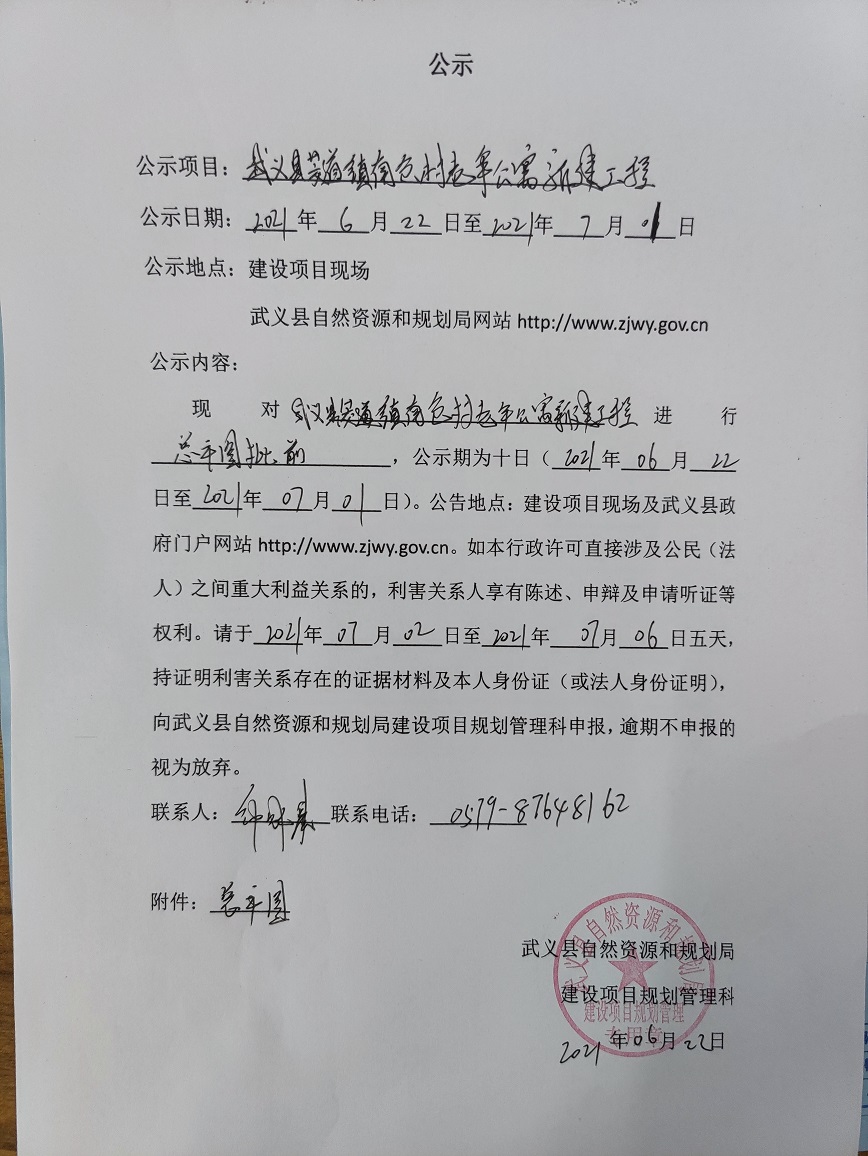 公示
公示项目：武义县茭道镇南仓村老年公寓新建工程
公示日期：2021年6月22日至2021年7月01日
公示地点：建设项目现场
武义县自然资源和规划局网站 http://www.zjwy.gov.cn
公示内容：
现对武义县茭道镇南仓村老年公寓新建工程进行
总平图批前，公示期为十日（2021年06月22
日至2021年07月01日）。公告地点：建设项目现场及武义县政
府门户网站 http://www.zjwy.gov.cn。如本行政许可直接涉及公民（法
人）之间重大利益关系的，利害关系人享有陈述、申辩及申请听证等
权利。请于2021年07月02日至2021年07月06日五天，
持证明利害关系存在的证据材料及本人身份证（或法人身份证明），
向武义县自然资源和规划局建设项目规划管理科申报，逾期不申报的
视为放弃。
联系人：联系电话：0579-87648162
附件：总平图
武义县自然资源和规划局
建设项目规划管理科
2021年06月22日
武义县自然资源和规划局
建设项目规划管理
专用章